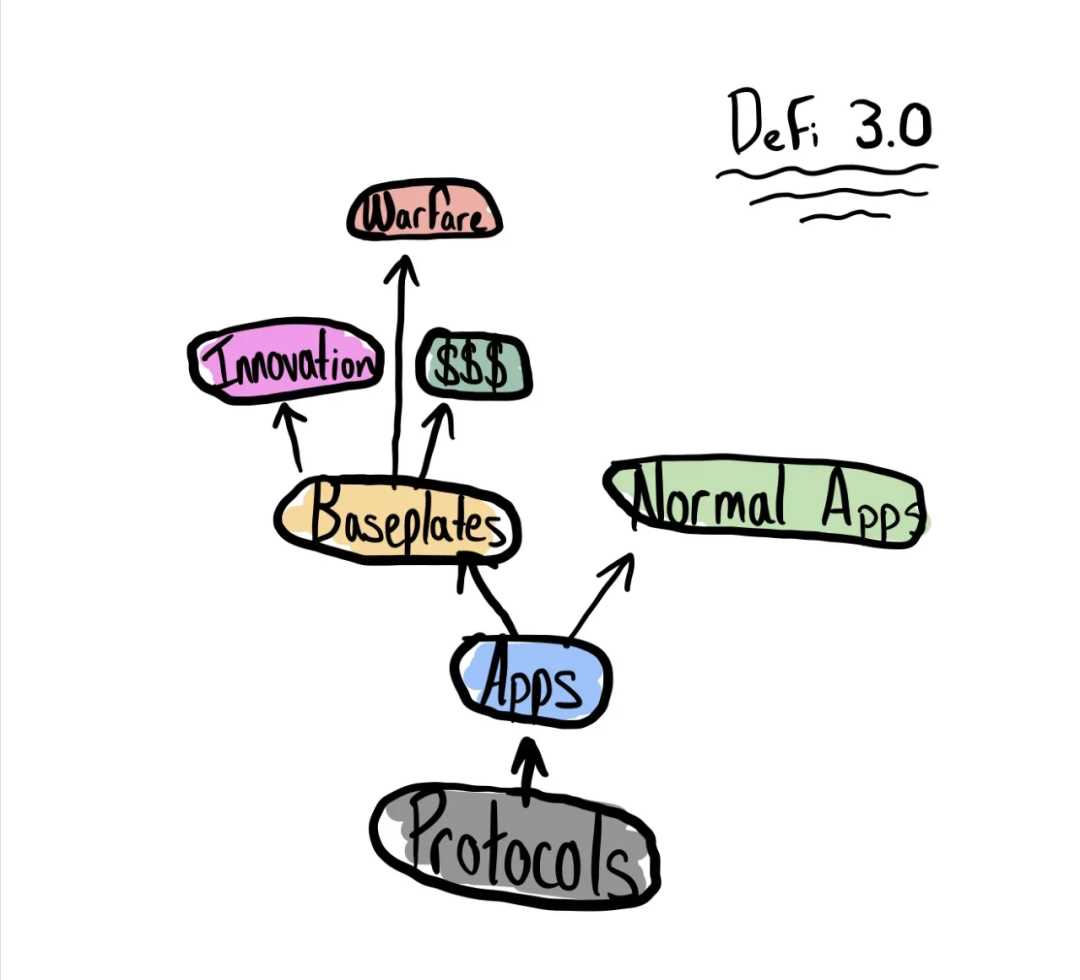 DeFi 3.0
Warfare
Innovation
$$$
Baseplates
Normal Apps
Apps
Protocols